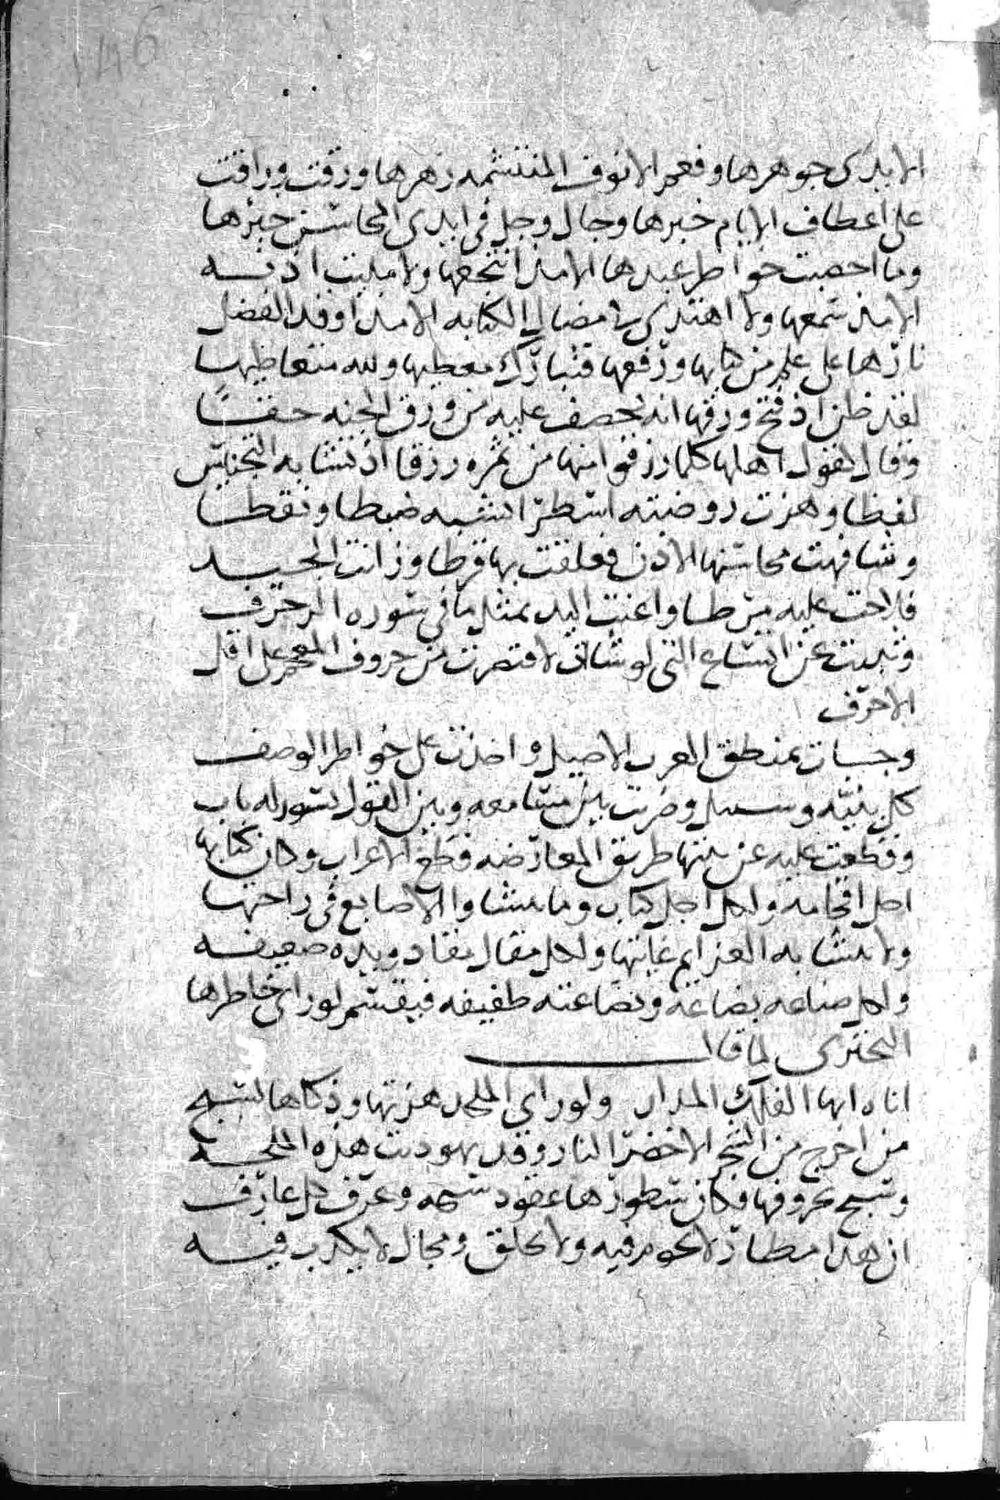 146
الايدى جوهرها وفعم الانوف المنتشمه زهرها ورقت وراقت
على اعطاف الايام خبرها وجال وجل فى ايدى المحاسن حبرها
وما اخصبت خواطر عبدها الا مذ انتجعها ولا مليت اذنه
الا مذ سمعها ولا اهتدى الكتابه الا مذ اوقد الفضل
نارها على علم من كتابها ورفعها فتبارك معطيها ولله متعاطيها
لقد ظن اذ فتح ورقها انه يخصف عليه من ورق الجنه حقا
وقال لقول اهلها كلما رزقوا منها من ثمره رزقا اذ تشابه التجنيس
لفظا وهزت روضته اسطرا لشبه ضبطا ونقطا
وشافهت محاسنها الاذن فعلقت بها قرطا وزانت الجيد
فلاحت عليه واغنت اليد بمثل ما فى سوره الزخرف
عن اتساع التى لو شات لاقتصرت من حروف المعجم على اقل
الاحرف
وجات بمنطق العرب الاصيل واخذت على خواطر الوصف
كل ثنيه وسبيل وضربت بين مسامعه وبين القول بسور له باب
وقطعت عليه عن طريق المعارضه قطع الاعراب وكان كتابها
اجل اقحامه ولكل اجل كتاب وما الاصابع فى راحتها
ولا تتشابه العزايم غاياتها ولكل مقال مقاد ويده ضعيفه
ولكل صناعه بضاعه وبضاعته طفيفه فيقسم لو راى خاطرها
البحترى لما قال
اناه ايها الفلك المدار ولو راى الملحد هزتها وذكاها لسبح
من اخرج من الشجر الاخضر النار وقد هذه
وسبح بحروفها فكان سطورها عقود سبحه وعرف كل عارف
ان هذا مطار لا يحوم فيه ولا يحلق ومجال لا يكذب فيه